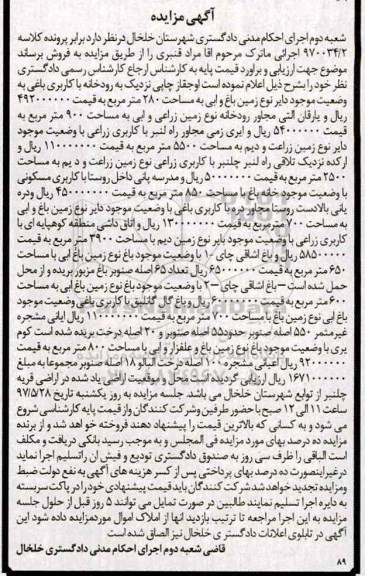 آگهی مزایده
شعبه دوم اجرای احکام مدنی دادگستری شهرستان خلخال درنظر دارد برابر پرونده کلاسه
۹۷۰۰۳۴/۲ اجرائی ماترک مرحوم اقا مراد قنبری را از طریق مزایده به فروش برساند
موضوع جهت ارزیابی و براورد قیمت پایه به کارشناس ارجاع کارشناس رسمی دادگستری
نظر خود را بشرح ذیل اعلام نموده است اوجقاز چاپی نزدیک به رودخانه با کاربری باغی به
وضعیت موجود دایر نوع زمین باغ و ابی به مساحت ۲۸۰ متر مربع به قیمت ۴۹۲۰۰۰۰۰
ریال و یارقان التی مجاور رودخانه نوع زمین زراعی و ابی به مساحت ۹۰۰ متر مربع به
قیمت ۵۴۰۰۰۰۰۰ ریال و ایری زمی مجاور راه لنبر با کاربری زراعی با وضعیت موجود
دایر نوع زمین زراعت و دیم به مساحت ۵۵۰۰ متر مربع به قیمت ۱۱۰۰۰۰۰۰۰ ریال و
ارکده نزدیک تلاقی راه لنبر چلنبر با کاربری زراعی نوع زمین زراعت و دیم به مساحت
۲۵۰۰ متر مربع به قیمت ۵۰۰۰۰۰۰۰ ریال و مدرسه یانی داخل روستا با کاربری مسکونی
با وضعیت موجود خانه باغ با مساحت ۸۵۰ متر مربع به قیمت ۴۵۰۰۰۰۰۰۰ ریال ودره
یانی بالادست روستا مجاور راه با کاربری باغی با وضعیت موجود دایر نوع زمین باغ و ابی
به مساحت ۷۰۰ متر مربع به قیمت ۱۳۰۰۰۰۰۰۰ ریال و اتاق داشی منطقه کوهپایه ای با
کاربری زراعی با وضعیت موجود بایر نوع زمین دیم با مساحت ۳۹۰۰ متر مربع به قیمت
۵۸۵۰۰۰۰۰ ریال و باغ اشاقی چای -۱ با وضعیت موجود باغ نوع زمین باغ ابی با مساحت
۶۵۰ متر مربع به قیمت ۶۵۰۰۰۰۰۰ ریال تعداد ۶۵ اصله صنوبر باغ مزبور بریده و از محل
حمل شده است –باغ اشاقی چای -۲ با وضعیت موجود باغ نوع زمین باغ ابی به مساحت
۶۰۰ متر مربع به قیمت ۶۰۰۰۰۰۰۰ ریال و باغ گل گانلیق با کاربری باغی وضعیت موجود
باغ ابی نوع زمین باغ با مساحت ۷۰۰ متر مربع به قیمت ۱۱۰۰۰۰۰۰۰ ریال ایانی مشجره
غیرمثمر ۵۵۰ اصله صنوبر حدود۵۵ اصله صنوبر و ۲۰ اصله درخت بریده شده است کوم
یری با وضعیت موجود باغ نوع زمین باغ و علفزار و ابی با مساحت ۸۰۰ متر مربع به قیمت
۹۲۰۰۰۰۰۰ ریال اعیانی مشجره ۱۰۰ اصله درخت آلبالو ۱۸ اصله صنوبر مجموعا به مبلغ
۱۶۷۱۰۰۰۰۰۰ ریال ارزیابی گردیده است محل و موقعیت اراضی یاد شده در اراضی قریه
چلنبر از توابع شهرستان خلخال می باشد. جلسه مزایده به روز یکشنبه تاریخ ۹۷/۵/۲۸
ساعت ۱۱ الی ۱۲ صبح با حضور طرفین وشرکت کنندگان واز قیمت پایه کارشناسی شروع
می شود و به کسانی که بالاترین قیمت را پیشنهاد دهند فروخته خواهد شد و از برنده
مزایده ده درصد بهای مورد مزایده فی المجلس و به موجب رسید بانکی دریافت و مکلف
است الباقی را ظرف سی روز به صندوق دادگستری تودیع و فیش ان راتسلیم اجرا نماید
درغیراینصورت ده درصد بهای پرداختی پس از کسر هزینه های آگهی به نفع دولت ضبط
ومزایده تجدید خواهد شد شرکت کنندگان باید قیمت پیشنهادی خود را در پاکت سربسته
به دایره اجرا تسلیم نمایند طالبین در صورت تمایل می توانند ۵ روز قبل از حلول جلسه
مزایده به این اجرا مراجعه تا ترتیب بازدید انها از املاک اموال موردمزایده داده شود این
آگهی در تابلوی اعلانات دادگستری خلخال نیز الصاق شده است
قاضی شعبه دوم اجرای احکام مدنی دادگستری خلخال
۸۹